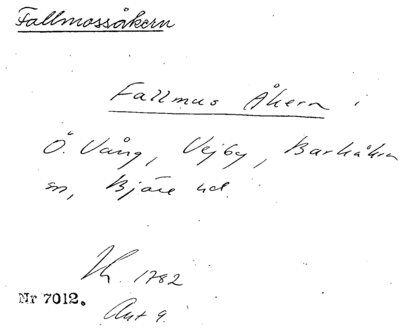 Fallmossåkern
Fallmus Åkern i
Ö. Vång, Vejby, Barkåkra
sn, Bjäre hd.
Lh. 1782
Nr 7012.
Akt 9.